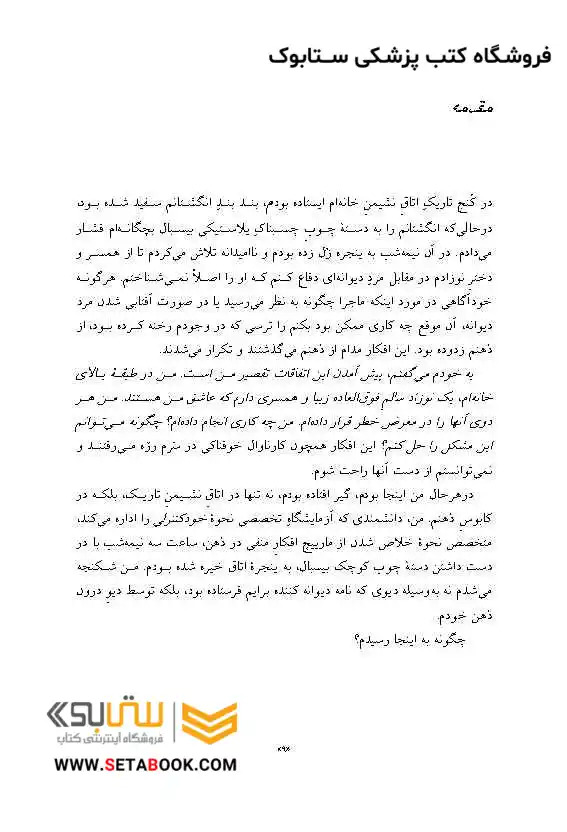 فروشگاه کتب پزشکی ستابوک
مقدمه
در کُنج تاریکِ اتاقِ نشیمنِ خانه‌ام ایستاده بودم، بند بندِ انگشتانم سفید شده بود،
درحالی‌که انگشتانم را به دستهٔ چوبِ چسبناکِ پلاستیکی بیسبال بچگانه‌ام فشار
می‌دادم. در آن نیمه‌شب به پنجره زُل زده بودم و ناامیدانه تلاش می‌کردم تا از همسر و
دختر نوزادم در مقابل مردِ دیوانه‌ای دفاع کنم که او را اصلاً نمی‌شناختم. هرگونه
خودآگاهی در مورد اینکه ماجرا چگونه به نظر می‌رسید یا در صورت آفتابی شدن مرد
دیوانه، آن موقع چه کاری ممکن بود بکنم را ترسی که در وجودم رخنه کرده بود، از
ذهنم زدوده بود. این افکار مدام از ذهنم می‌گذشتند و تکرار می‌شدند.
به خودم می‌گفتم، پیش آمدن این اتفاقات تقصیر من است. من در طبقهٔ بالای
خانه‌ام، یک نوزاد سالم فوق‌العاده زیبا و همسری دارم که عاشق من هستند. من هر
دوی آنها را در معرض خطر قرار داده‌ام. من چه کاری انجام داده‌ام؟ چگونه می‌توانم
این مشکل را حل کنم؟ این افکار همچون کارناوال خوفناکی در سرم رژه می‌رفتند و
نمی‌توانستم از دست آنها راحت شوم.
درهرحال من اینجا بودم، گیر افتاده بودم، نه تنها در اتاقِ نشیمنِ تاریک، بلکه در
کابوسِ ذهنم. من، دانشمندی که آزمایشگاهِ تخصصیِ نحوهٔ خودکنترلی را اداره می‌کند،
متخصصِ نحوهٔ خلاص شدن از مارپیچِ افکارِ منفی در ذهن، ساعت سه نیمه‌شب با در
دست داشتن دستهٔ چوب کوچک بیسبال، به پنجرهٔ اتاق خیره شده بودم. من شکنجه
می‌شدم نه به‌وسیله دیوی که نامه دیوانه کننده برایم فرستاده بود، بلکه توسط دیوِ درون
ذهن خودم.
چگونه به اینجا رسیدم؟
ستابوک
فروشگاه اینترنتی کتاب
WWW.SETABOOK.COM
«۹»